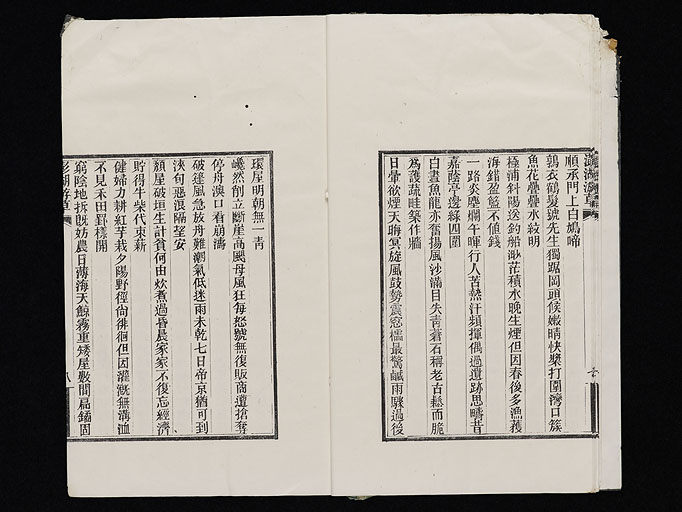 順承門上白鳩啼
鶉衣鶴髮號先生獨踞岡頭候嫩晴快槳打圍灣口簇
魚花疊疊水紋明
極浦斜陽送釣船渺茫積水晚生煙但因春後多漁穫
海錯盈籃不值錢
一路炎塵欄午暉行人苦熱汗頻揮偶過遺跡思疇昔
嘉蔭亭邊綠四圍
白晝魚龍亦奮揚風沙滿目失青蒼石稱老古鬆而脆
為護蔬畦築作牆
日暈欲煙天晦冥旋風鼓勢震窓櫺最驚鹹雨驟過後
環屋明朝無一青
巉然削立斷崖高颶母風狂每怒號無復販商遭搶奪
停舟澳口看崩濤
破篷風急放舟難潮氣低迷雨未乾七日帝京猶可到
浹旬惡浪隔望安
頹屋破垣生計貧何由炊煮過昏晨家家不復忘經濟
貯得牛柴代束薪
健婦力耕紅芋栽夕陽野徑尙徘徊但因灌溉無溝洫
不見禾田罫樣開
窮陰地拆既妨農日薄海天鯨霧重矮屋數間扁鐍固